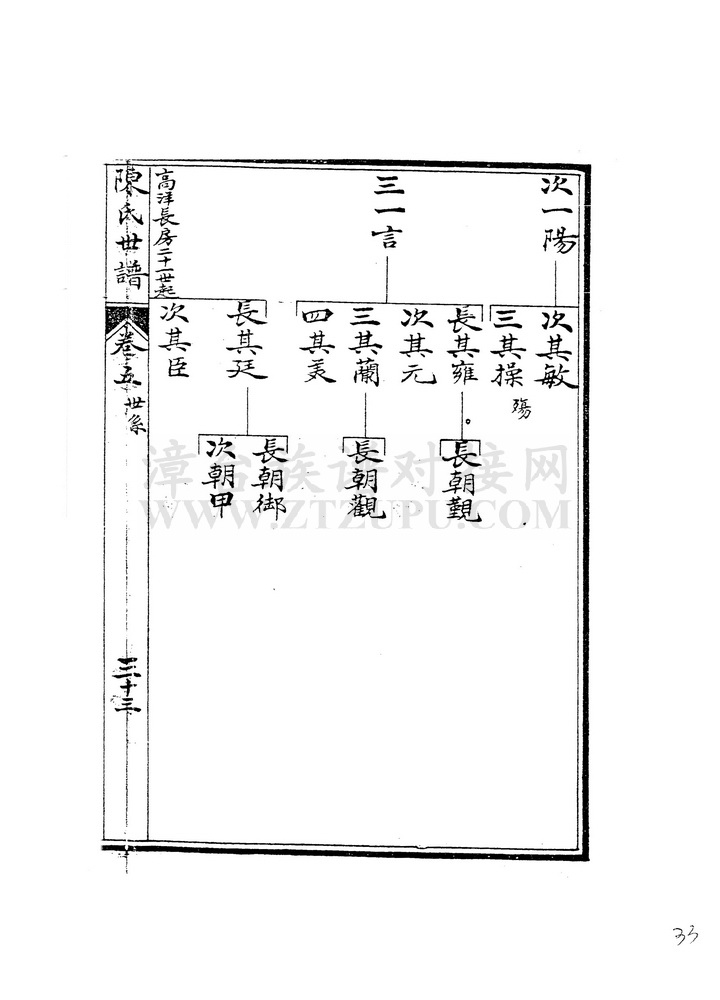 次一陽
三一言
高洋長房二十一世起
次其敏
三其操 殤
長其雍
次其元
三其蘭
四其美
長其廷
次其臣
長朝覲
長朝觀
長朝御
次朝甲
陳氏世譜
卷五 世系
三十三
漳台族谱对接网
WWW.ZTZUPU.COM
33